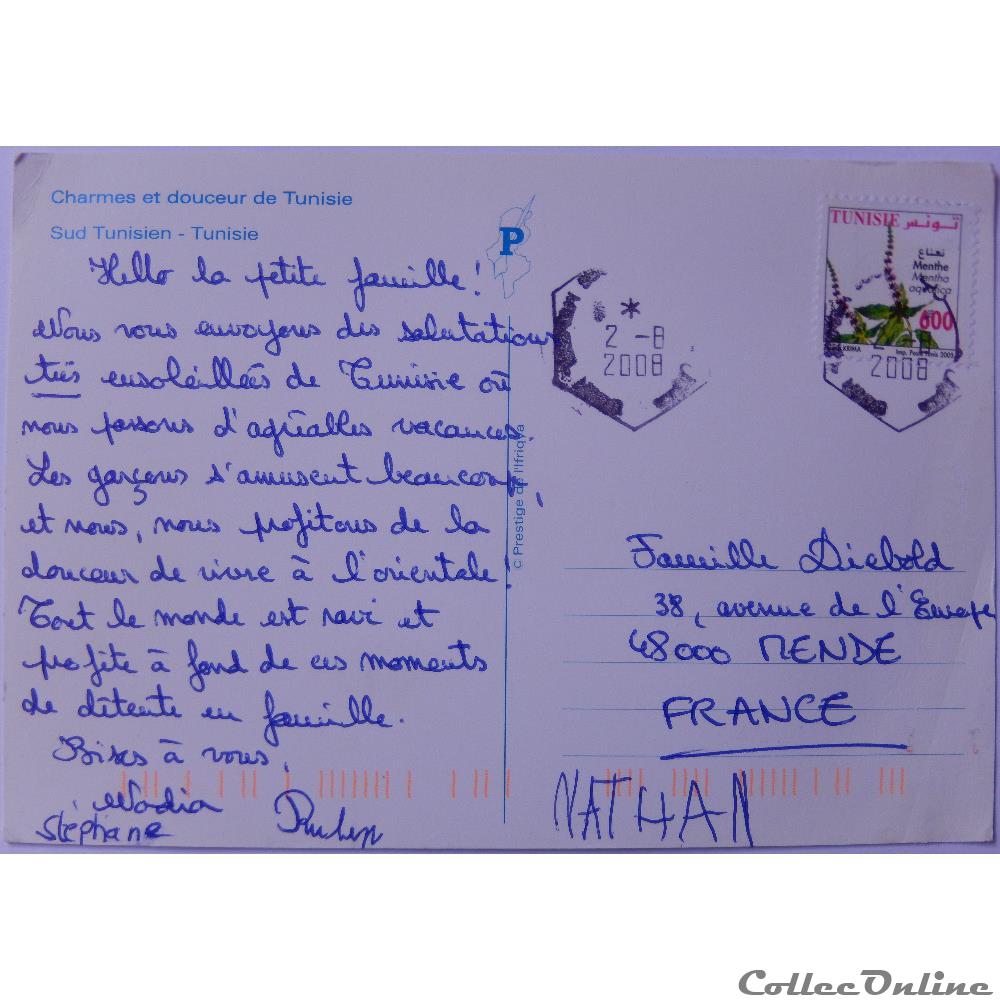 Charmes et douceur de Tunisie
Sud Tunisien - Tunisie
P
Hello la petite famille !
Nous vous envoyons des salutations
très ensoleillées de Tunisie où
nous passons d'agréables vacances.
Les garçons s'amusent beaucoup
et nous, nous profitons de la
douceur de vivre à l'orientale !
Tout le monde est ravi et
profite à fond de ces moments
de détente en famille.
Bises à vous,
Nadia
Stéphane
Ruben
NATHAN
© Prestige de l'Ifriqya
*
2 -8
2008
TUNISIE تونس
نعناع
Menthe
Mentha
aquatica
600
KRIMA
Imp. Poste Tunis 2005
2 -8
2008
Famille Diebold
38, avenue de l'Europe
48000 MENDE
FRANCE
CollecOnline